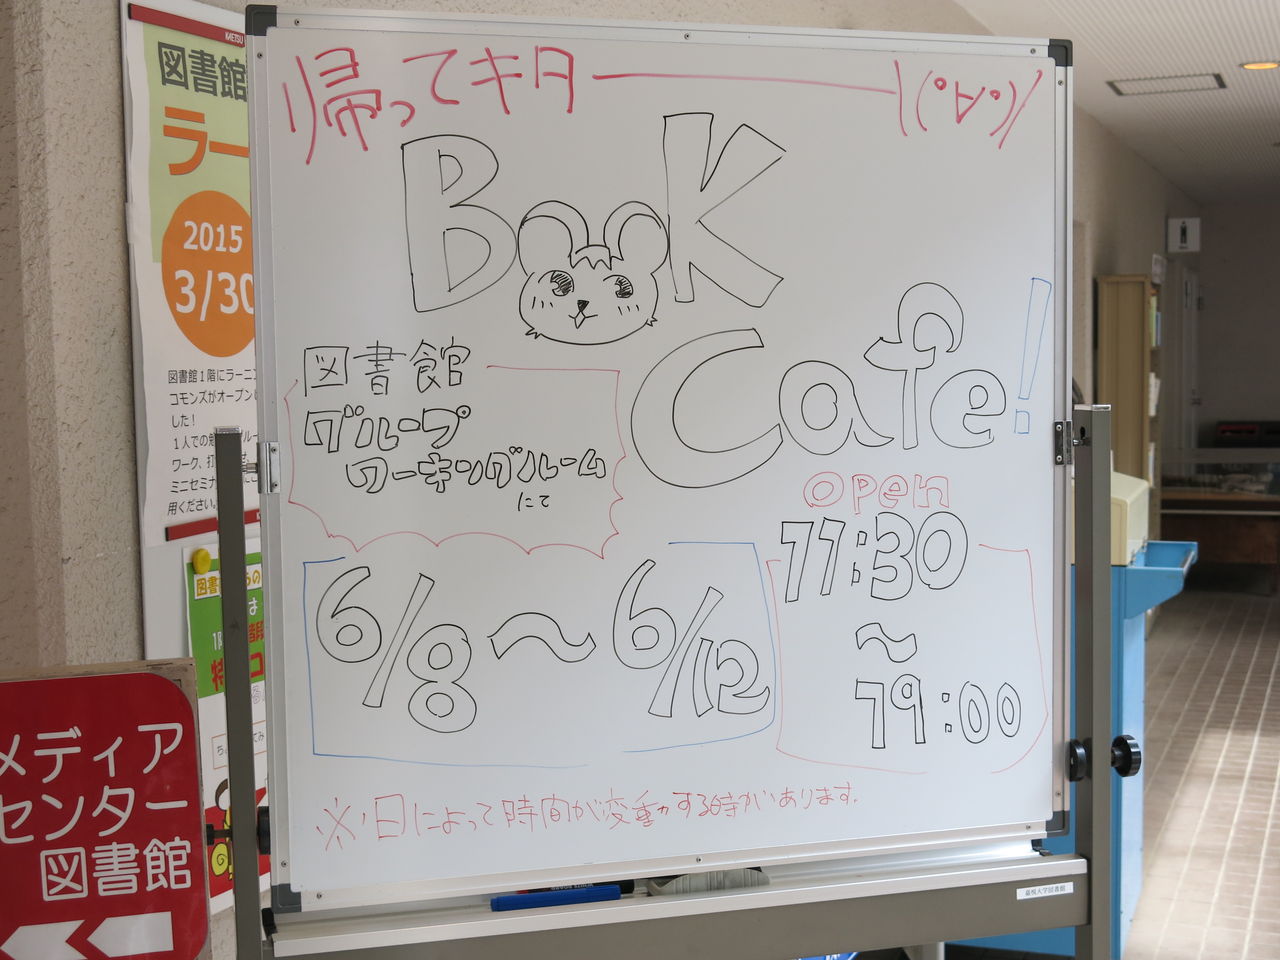 帰ってキタ――――!(°∀°)/
BOOK
Cafe!
図書館
グループ
ワーキングルーム
にて
open
11:30
～
19:00
6/8～6/12
※日によって時間が変動する時があります。
KAETSU
図書館
ラー
2015
3/30
図書館1階にラーニン
コモンズがオープンし
した!
ワーク、打
ミニセミナ
用ください。
メディア
センター
図書館
嘉悦大学図書館